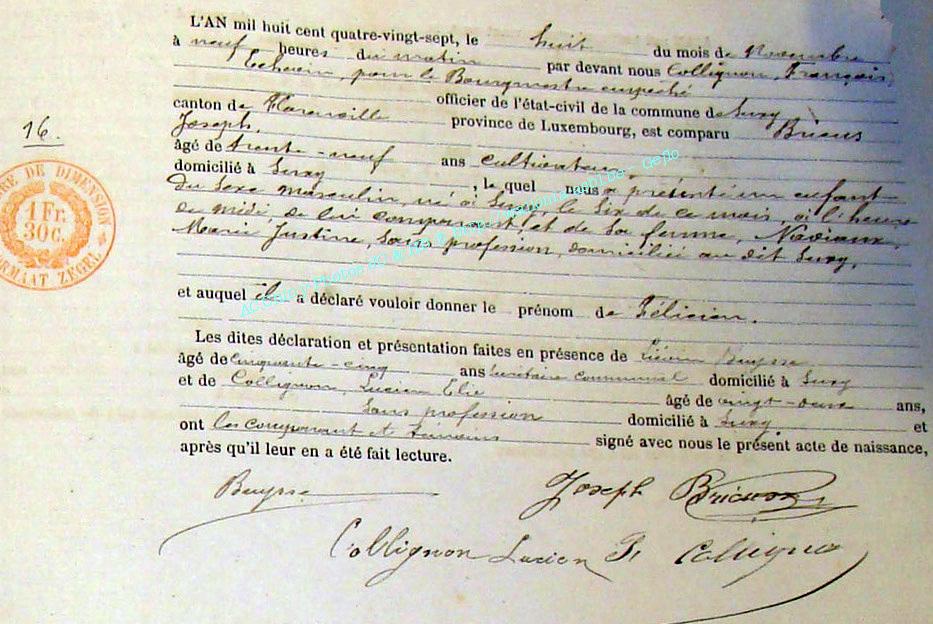 L'AN mil huit cent quatre-vingt-sept, le huit du mois de Novembre
à neuf heures du matin par devant nous Collignon, François
Echevin, pour le Bourgmestre empêché
officier de l'état-civil de la commune de Suxy
canton de Florenville province de Luxembourg, est comparu
Joseph,
16.
âgé de trente-neuf ans cultivateur,
domicilié à Suxy, le quel nous a présenté un enfant
du sexe masculin, né à Suxy, le six de ce mois, à l'heure
de midi, de lui comparant et de sa femme,
Marie Justine, sans profession, domiciliée au dit Suxy,
RE DE DIMENSION
1 Fr.
30C.
ORMAAT ZEGEL
et auquel il a déclaré vouloir donner le prénom de Félicien.
Les dites déclaration et présentation faites en présence de Buysse
âgé de cinquante-cinq ans Secrétaire communal domicilié à Suxy
et de Collignon, Lucien Elie âgé de vingt- ans,
sans profession domicilié à Suxy. et
ont les comparant et témoins signé avec nous le présent acte de naissance,
après qu'il leur en a été fait lecture.
Buysse Joseph
Collignon Lucien Collignon